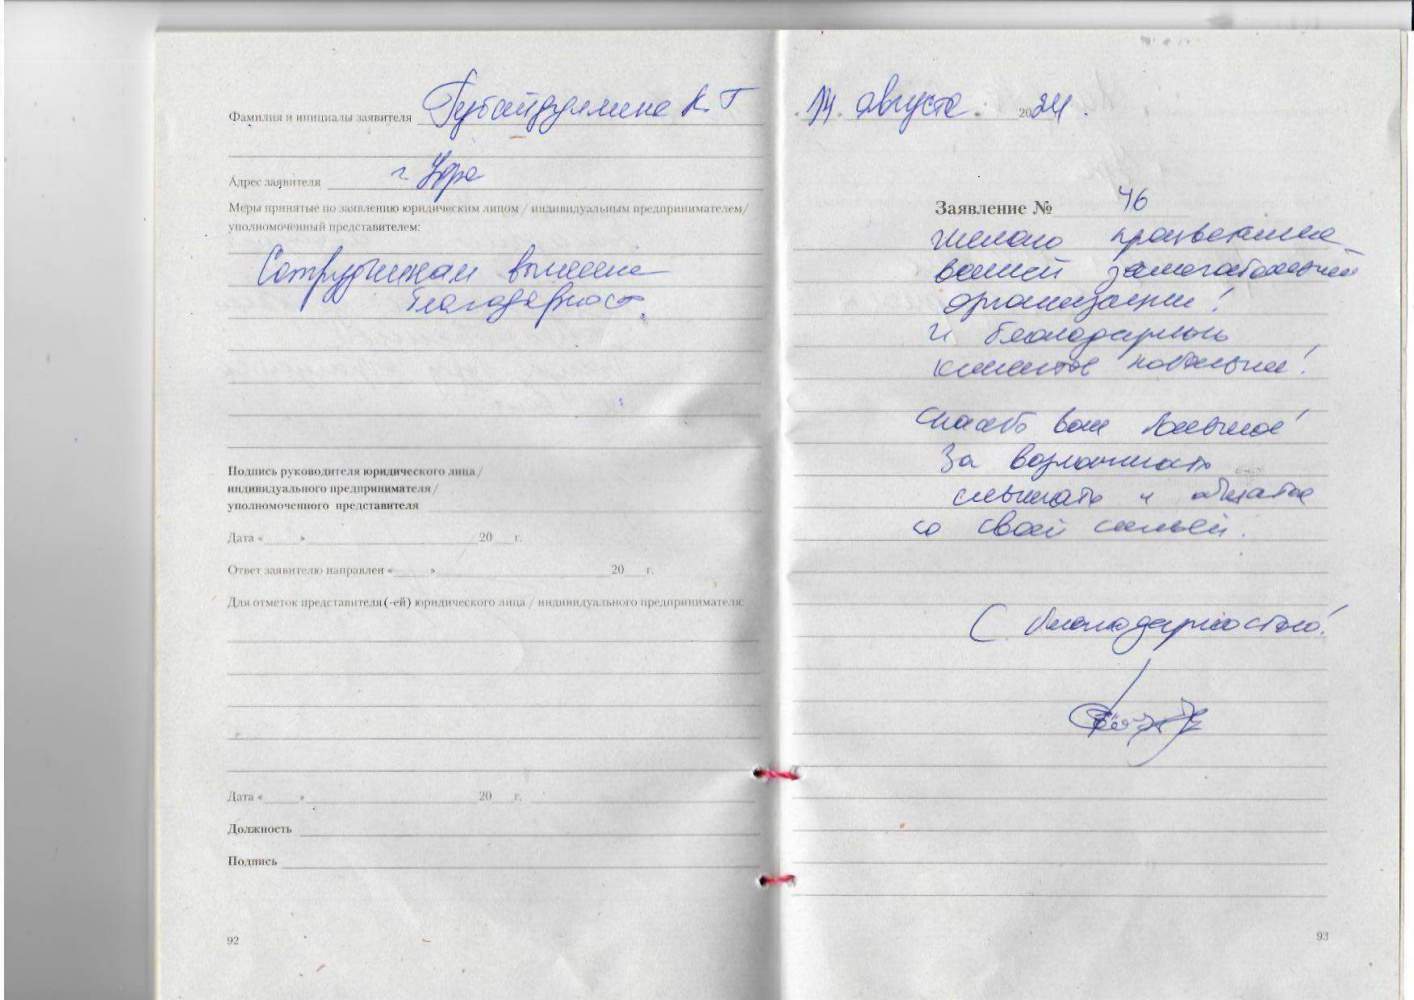 Фамилия и инициалы заявителя Губайдуллина К Г
Адрес заявителя г Уфа
Меры принятые по заявлению юридическим лицом / индивидуальным предпринимателем/
уполномоченный представителем:
Сотрудникам вынесена
благодарност.
Подпись руководителя юридического лица/
индивидуального предпринимателя/
уполномоченного представителя
Дата «_____»_____20___г.
Ответ заявителю направлен «_____»_____20___г.
Для отметок представителя(-ей) юридического лица / индивидуального предпринимателя:
Дата «_____»_____20___г.
Должность
Подпись
92
14 августа 2024.
Заявление № 46
Желаю процветания
вашей замечательной
организации!
И благодарных
клиентов
Спасибо вам большое!
За возможность
слышать и общатся
со своей семьей.
С благодарностью!
93